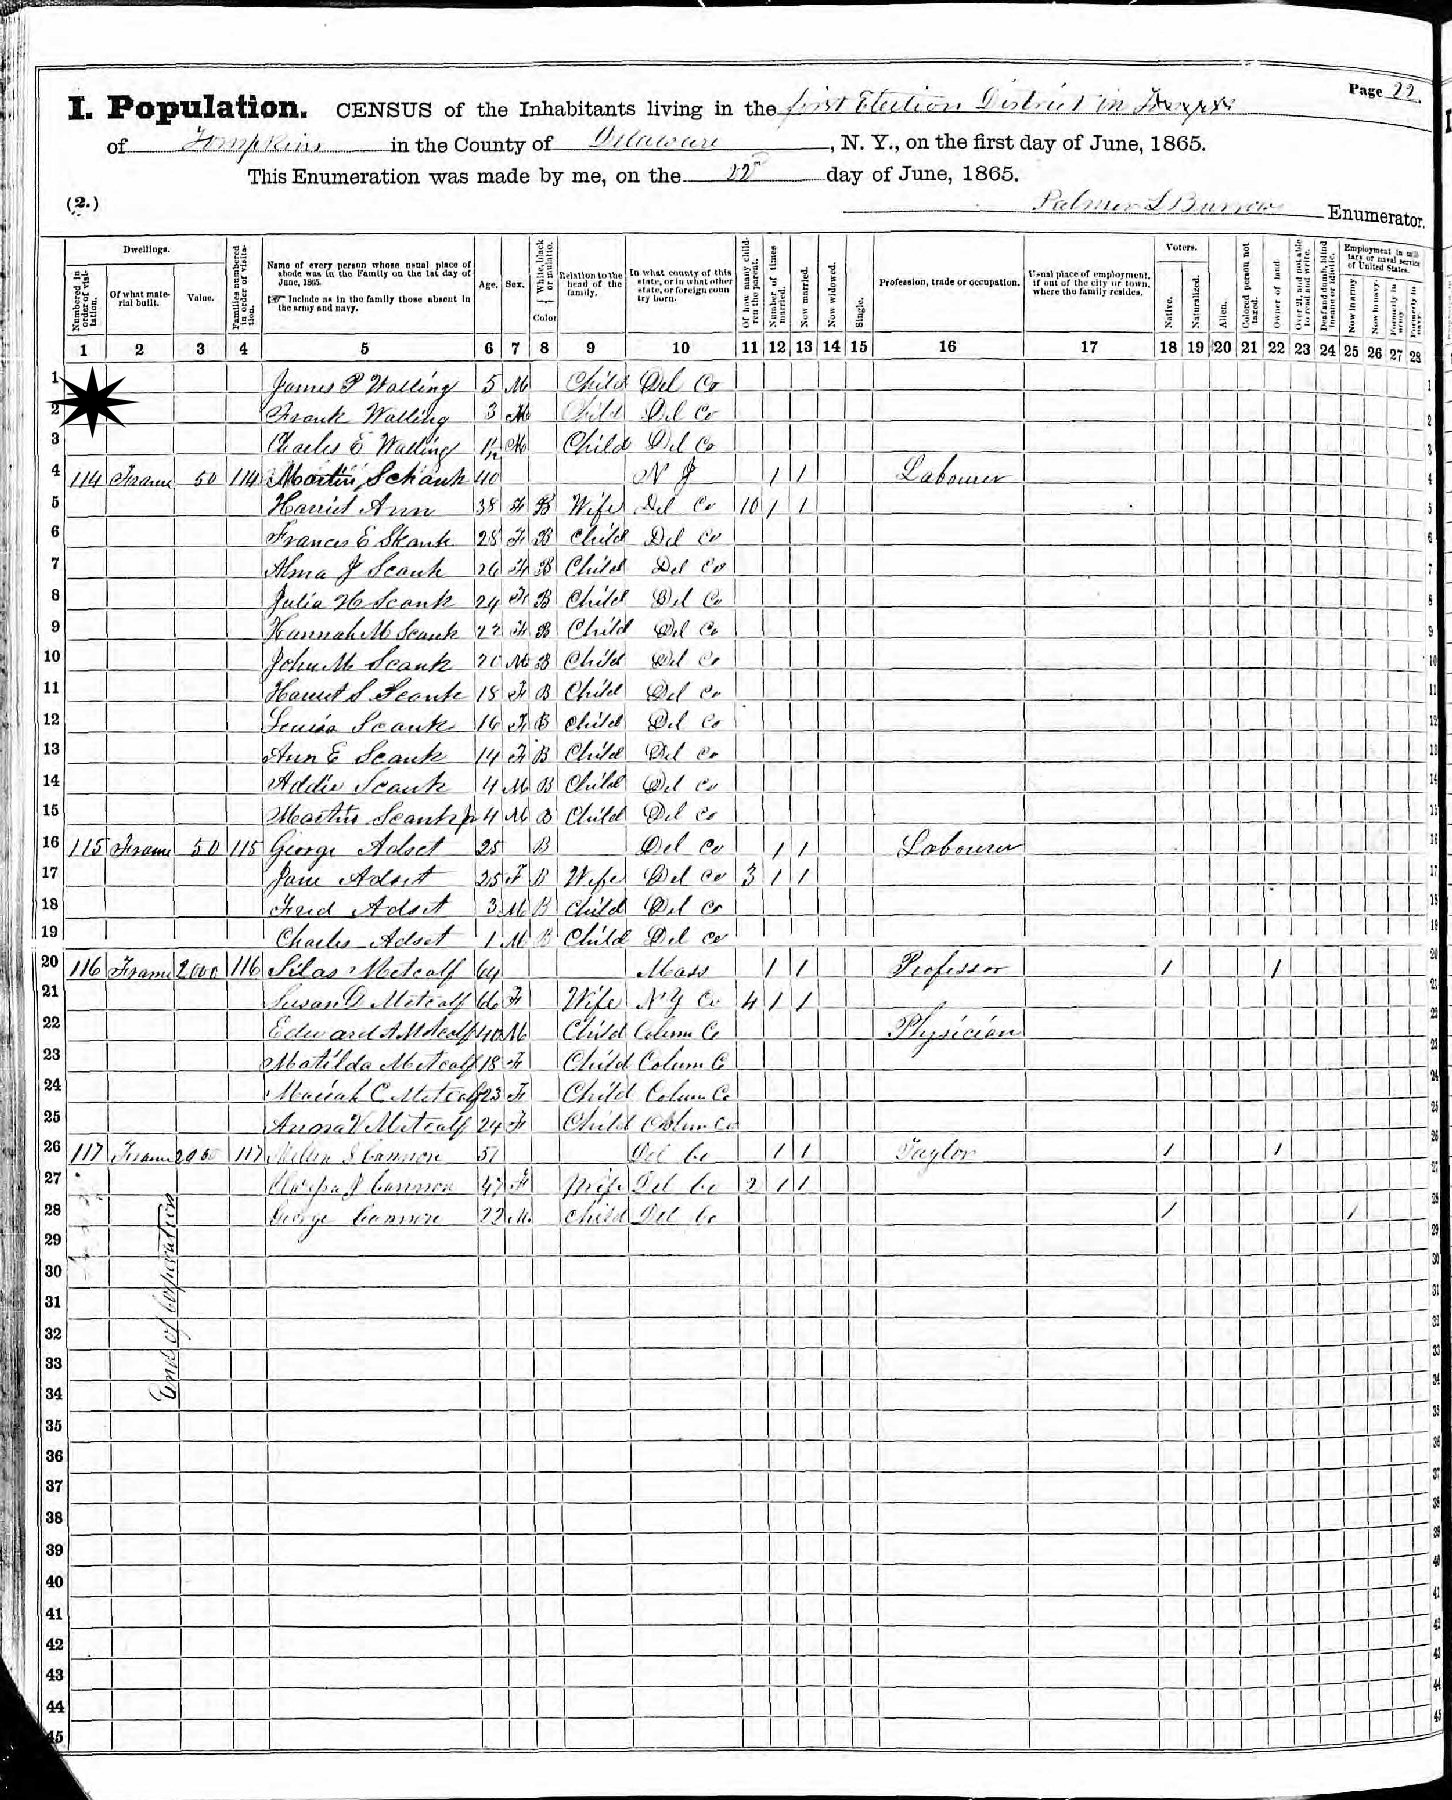 Page 22.
I. Population. CENSUS of the Inhabitants living in the first Election District in
of Tompkins in the County of Delaware, N. Y., on the first day of June, 1865.
This Enumeration was made by me, on the 22d day of June, 1865.
(2.) Palmer L Burrows Enumerator.
Dwellings. Voters. Employment in military or naval service of United States.
Numbered in order of visitation. Of what material built. Value. Families numbered in order of visitation. Name of every person whose usual place of abode was in the Family on the 1st day of June, 1865. Include as in the family those absent in the army and navy. Age. Sex. White, black or mulatto. Color Relation to the head of the family. In what county of this state, or in what other state, or foreign country born. Of how many children the parent. Number of times married. Now married. Now widowed. Single. Profession, trade or occupation. Usual place of employment, if out of the city or town, where the family resides. Native. Naturalized. Alien. Colored person not taxed. Owner of land. Over 21, and not able to read and write. Deaf and dumb, blind insane or idiotic. Now in army. Now in navy. Formerly in army. Formerly in navy.
1 2 3 4 5 6 7 8 9 10 11 12 13 14 15 16 17 18 19 20 21 22 23 24 25 26 27 28
1 James P Walling 5 M Child Del Co 1
2 Frank Walling 3 M Child Del Co 2
3 Charles E Walling M Child Del Co 3
4 114 Frame 50 114 Martin Schank 40 N J 1 1 Labourer 4
5 Harriet Ann 38 F B Wife Del Co 10 1 1 5
6 Frances E Skank 28 F B Child Del Co 6
7 Alma J Scank 26 F B Child Del Co 7
8 Julia H Scank 24 F B Child Del Co 8
9 Hannah M Scank 22 F B Child Del Co 9
10 John M Scank 20 M B Child Del Co 10
11 Harriet S Scank 18 F B Child Del Co 11
12 Louisa Scank 16 F B Child Del Co 12
13 Ann E Scank 14 F B Child Del Co 13
14 Addie Scank 4 M B Child Del Co 14
15 Martin Scank Jr 4 M B Child Del Co 15
16 115 Frame 50 115 George Adset 25 B Del Co 1 1 Labourer 16
17 Jane Adset 25 F B Wife Del Co 3 1 1 17
18 Fred Adset 3 M B Child Del Co 18
19 Charles Adset 1 M B Child Del Co 19
20 116 Frame 2000 116 Silas Metcalf 64 Mass 1 1 Professor 1 1 20
21 Susan D Metcalf 66 F Wife N Y Co 4 1 1 21
22 Edward A Metcalf 40 M Child Colum Co Physician 22
23 Matilda Metcalf 18 F Child Colum Co 23
24 Mariah C Metcalf 23 F Child Colum Co 24
25 Anna V Metcalf 24 F Child Colum Co 25
26 117 Frame 2000 117 Cannon 51 Del Co 1 1 Taylor 1 1 26
27 Cannon 47 F Wife Del Co 2 1 1 27
28 George Cannon 22 M. Child Del Co 1 1 28
29 29
30 30
31 31
32 32
33 33
34 34
35 35
36 36
37 37
38 38
39 39
40 40
41 41
42 42
43 43
44 44
45 45
End of Coperation